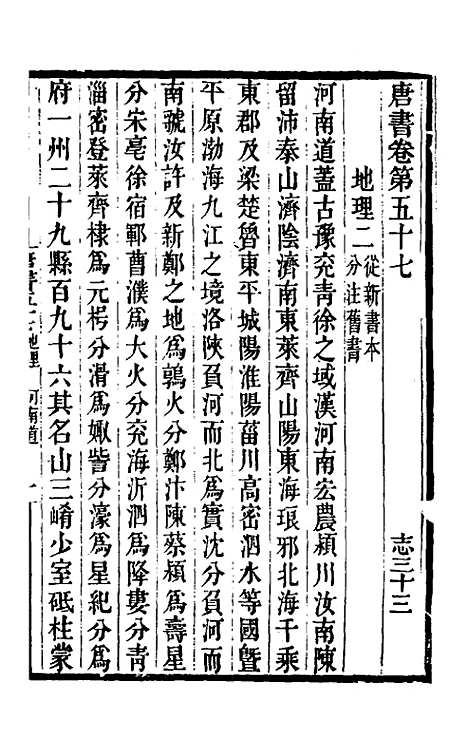 唐書卷第五十七
志三十三
地理二
從新書本
分注舊書
河南道蓋古豫兗青徐之域漢河南宏農潁川汝南陳
留沛泰山濟陰濟南東萊齊山陽東海琅邪北海千乘
東郡及梁楚魯東平城陽淮陽菑川高密泗水等國暨
平原渤海九江之境洛陝負河而北爲實沈分負河而
南虢汝許及新鄭之地爲鶉火分鄭汴陳蔡潁爲壽星
分宋亳徐宿鄆曹濮爲大火分兗海沂泗爲降婁分青
淄密登萊齊棣爲元枵分滑爲娵訾分濠爲星紀分爲
府一州二十九縣百九十六其名山三崤少室砥柱蒙
地理
河南道
一